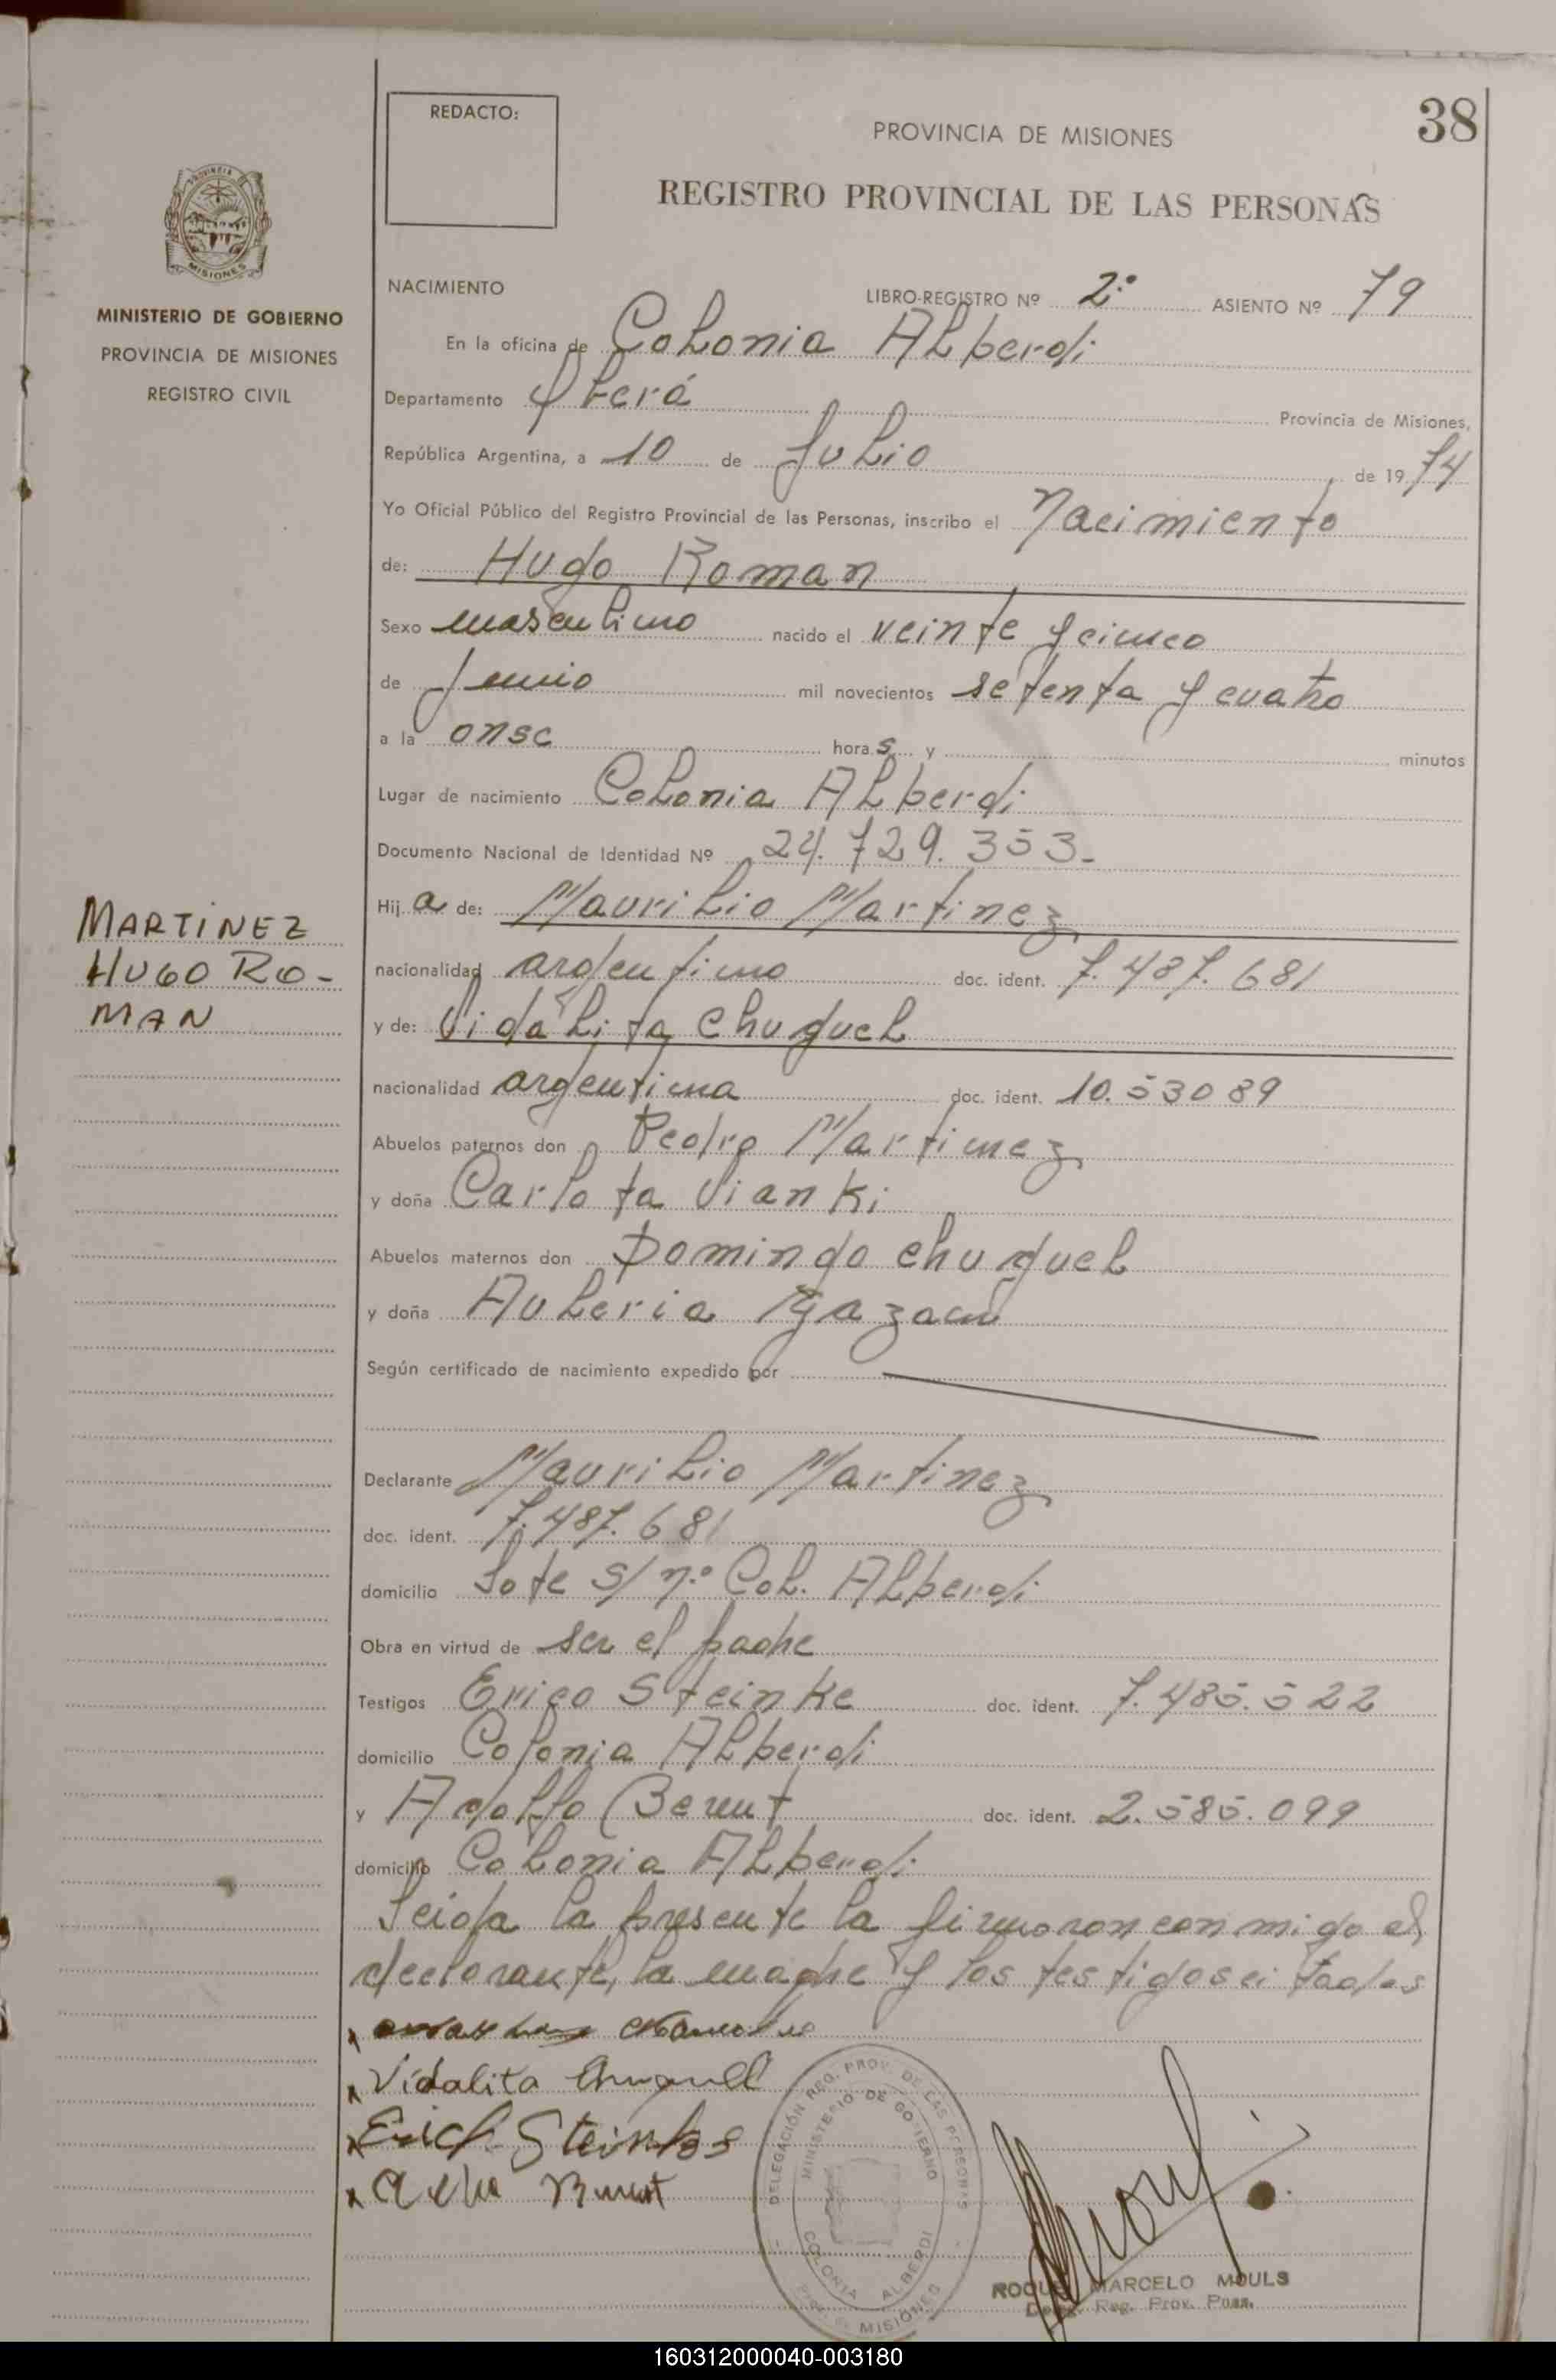 38
REDACTO:
PROVINCIA DE MISIONES
REGISTRO PROVINCIAL DE LAS PERSONAS
MISIONES
MINISTERIO DE GOBIERNO
PROVINCIA DE MISIONES
REGISTRO CIVIL
NACIMIENTO
LIBRO-REGISTRO Nº 2º ASIENTO Nº 79
En la oficina de Colonia Alberdi
Departamento Oberá Provincia de Misiones,
República Argentina, a 10 de Julio de 1974
Yo Oficial Público del Registro Provincial de las Personas, inscribo el Nacimiento
de: Hugo Roman
Sexo masculino nacido el veinte y cinco
de Junio mil novecientos setenta y cuatro
a la onse horas y minutos
Lugar de nacimiento Colonia Alberdi
Documento Nacional de Identidad Nº 24.729.353-
Hija de: Maurilio Martinez
MARTINEZ
HUGO RO-
MAN
nacionalidad argentino doc. ident. 7.487.681
y de: Vidalita Chuquel
nacionalidad argentina doc. ident. 10.53089
Abuelos paternos don Pedro Martinez
y doña Carlota Vianki
Abuelos maternos don Domingo Chuquel
y doña Auleria
Según certificado de nacimiento expedido por
Declarante Maurilio Martinez
doc. ident. 7.487.681
domicilio Lote s/nº Col. Alberdi
Obra en virtud de ser el padre
Testigos Erico Steinke doc. ident. 7.485.522
domicilio Colonia Alberdi
y Adolfo Berent doc. ident. 2.585.099
domicilio Colonia Alberdi
Leida la presente la firmaron conmigo el
declarante, la madre y los testigos citados
x
x Vidalita Chuquell
x Erich Steinke
x
DELEGACIÓN REG. PROV. DE LAS PERSONAS
MINISTERIO DE GOBIERNO
COLONIA ALBERDI
MISIONES
ROQUE MARCELO MOULS
Reg. Prov. Pers.
160312000040-003180